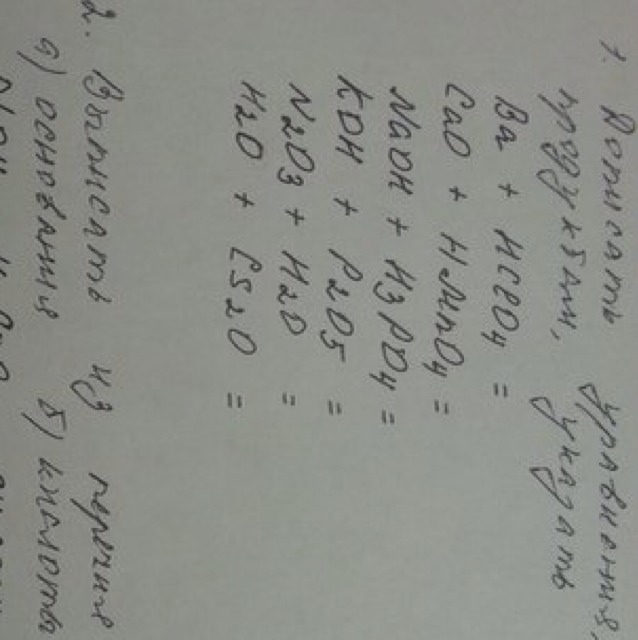 1. Дописать уравнения
продуктами, указать
Ba + HClO4 =
CaO + H2MnO4 =
NaOH + H3PO4 =
KOH + P2O5 =
N2O3 + H2O =
H2O + Cs2O =
2. Выписать из перечня
а) основания б) кислоты